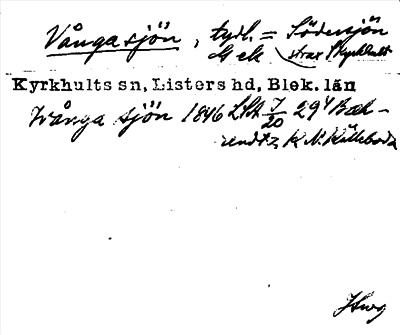 Vångasjön, tydl. = Södersjön
G ek strax S Kyrkhult
Kyrkhults sn, Listers hd, Blek. län
Wånga sjön 1846 LSA J/20 29
K N: Källeboda